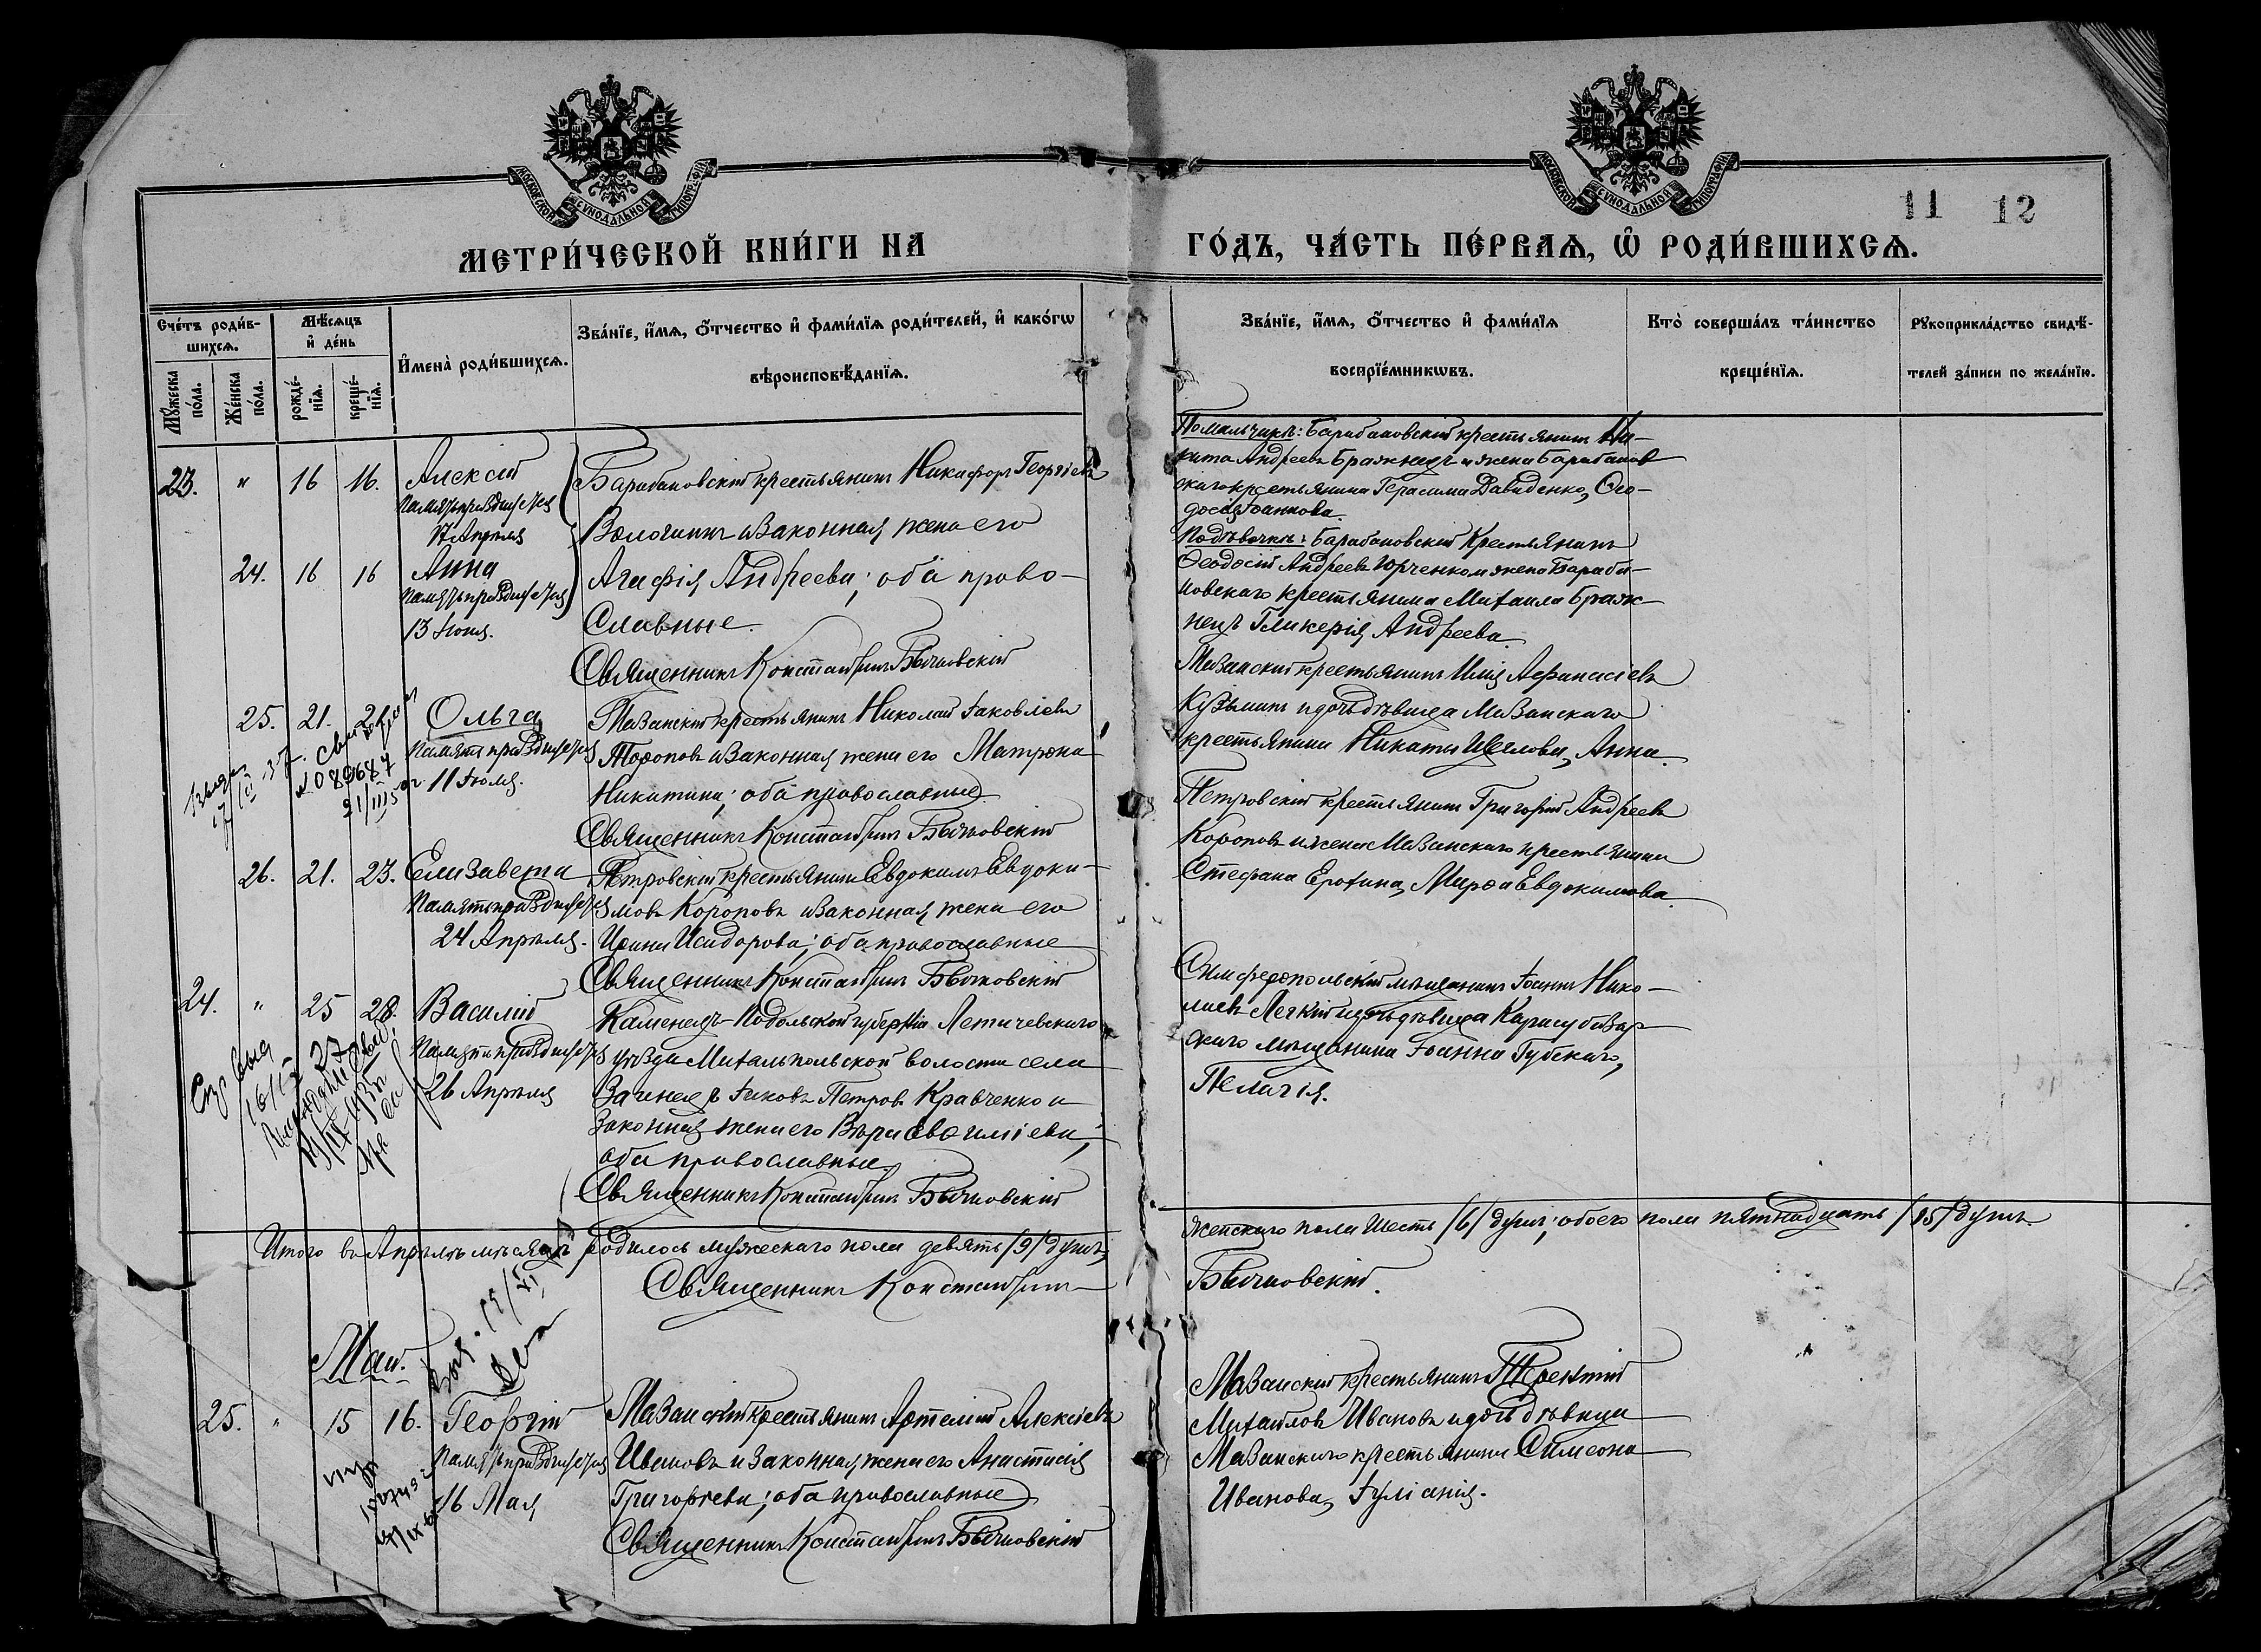 МОСКОВСКОЙ СУНОДАЛЬНОЙ ТИПОГРАФІИ
МОСКОВСКОЙ СУНОДАЛЬНОЙ ТИПОГРАФІИ
11 12
МЕТРИ́ЧЕСКОЙ КНИ́ГИ НА
ГО́ДЪ, ЧА́СТЬ ПЕ́РВАѦ, Ѡ҆ РОДИ́ВШИХСѦ.
Сче́тъ роди́в-
шихсѧ.
Мѣ́сѧцъ
и҆ де́нь
Мꙋ́жеска
по́ла.
Же́нска
по́ла.
рожде́-
нїѧ.
креще́-
нїѧ.
И҆мена̀ роди́вшихсѧ.
Зва́нїе, и҆́мѧ, ѻ҆́тчество и҆ фами́лїѧ роди́телей, и҆ како́гѡ
вѣроисповѣ́данїѧ.
Зва́нїе, и҆́мѧ, ѻ҆́тчество и҆ фами́лїѧ
воспрїе́мникѡвъ.
Кто̀ соверша́лъ та́инство
креще́нїѧ.
Рꙋкоприкла́дство свидѣ́-
телей за́писи по жела́нїю.
23. " 16 16. Алексій
Память празднуется
17 Апрѣля
Барабановскій крестьянинъ Никифоръ Георгіевъ
Вологинъ и законная жена его
24. 16 16 Анна
Память празднуется
13 Іюня.
Агафія Андреева; оба право-
славные.
Священникъ Константинъ Бычковскій
По мальчикѣ: Барабановскій крестьянинъ Ни-
кита Андреевъ Бражнецъ и жена Барабанов
скаго крестьянина Герасима Давиденко, Ѳео-
досія Іоаннова.
По дѣвочкѣ: Барабановскій Крестьянинъ
Ѳеодосій Андреевъ Юрченко и жена Бараба-
новскаго крестьянина Михаила Браж-
нецъ Гликерія Андреева.
25. 21. 21. Ольга
Память празднуется
11 Іюля.
Мазанскій крестьянинъ Николай Іаковлевъ
Торопов и законная жена его Матрона
Никитина; оба православные.
Священникъ Константинъ Бычковскій
№ 089687
Мазанскій крестьянинъ Илія Аѳанасіевъ
Кузьминъ и дочь дѣвица Мазанскаго
крестьянина Никиты Щеглова, Анна.
26. 21. 23. Елизавета
Память празднуется
24 Апрѣля.
Петровскій крестьянинъ Евдокимъ Евдоки-
мовъ Коропов и законная жена его
Ирина Исидорова; оба православные
Священникъ Константинъ Бычковскій
Петровскій крестьянинъ Григорій Андреевъ
Коропов и жена Мазанскаго крестьянина
Стефана Ерохина, Марѳа Евдокимова.
24. " 25 28. Василій
Память празднуется
26 Апрѣля
Каменецъ-Подольской губерніи Летичевскаго
уѣзда Михальпольской волости села
Загинецъ Іаковъ Петровъ Кравченко и
законная жена его Вѣра Василіева;
оба православные.
Священникъ Константинъ Бычковскій
Симферопольскій мѣщанинъ Іоаннъ Нико-
лаевъ Легкій и дочь дѣвица Карасубазар-
скаго мѣщанина Іоанна Губскаго,
Пелагія.
Итого въ Апрѣлѣ мѣсяцѣ родилось мужескаго пола девять /9/ душъ,
женскаго пола шесть /6/ душъ; обоего пола пятнадцать /15/ душъ.
Священникъ Константинъ
Бычковскій.
Май.
25. " 15 16. Георгій
Память празднуется
26 Мая
Мазанскій крестьянинъ Артемій Алексіевъ
Ивановъ и законная жена его Анастасія
Григоріева; оба православные
Священникъ Константинъ Бычковскій
Мазанскій крестьянинъ Терентій
Михайловъ Ивановъ и дочь дѣвица
Мазанскаго крестьянина Симеона
Иванова, Іуліанія.